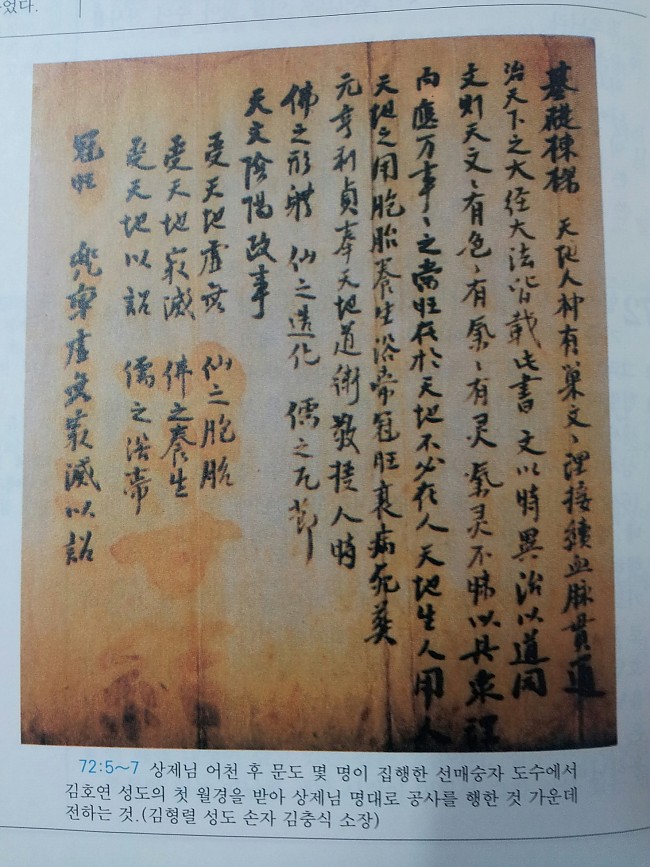 었다.
基礎棟樑 天地人神有巢文〻理接續血脉貫通
治天下之大经大法皆載此書 文以時異治以道同
文則天文〻有色〻有氣〻有灵 氣灵不昧以具衆理
而應万事〻之當旺在於天地不必在人 天地生人用人
天地之用胞胎養生浴帶冠旺衰病死葬
元亨利貞奉天地道術敬授人時
佛之形軆 仙之造化 儒之凡節
天文陰陽政事
受天地虛無 仙之胞胎
受天地寂滅 佛之養生
受天地以詔 儒之浴帶
冠旺 兜率虛無寂滅以詔
72:5~7 상제님 어천 후 문도 몇 명이 집행한 선매숭자 도수에서
김호연 성도의 첫 월경을 받아 상제님 명대로 공사를 행한 것 가운데
전하는 것.(김형렬 성도 손자 김충식 소장)